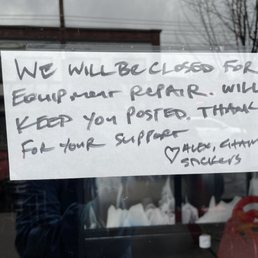 WE WILL BE CLOSED FOR
EQUIPMENT REPAIR. WILL
KEEP YOU POSTED. THANK
FOR YOUR SUPPORT
♡ ALEX,
STICKERS